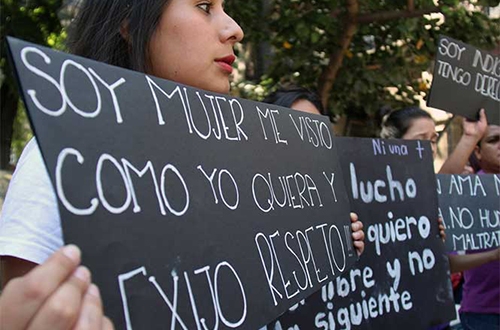 SOY MUJER ME VISTO
COMO YO QUIERA Y
EXIJO RESPETO!!!
Ni una +
lucho
quiero
libre y no
la siguiente
SOY INDI
TENGO DEREC
N AMA
NO HU
MALTRAT